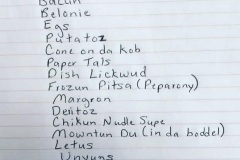 Bacun
Belonie
Egs
Putatoz
Cone on da Kob
Paper Tals
Dish Lickwud
Frozun Pitsa (Peparony)
Margren
Dentoz
Chikun Nudle Supe
Mowntun Du (in da boddel)
Letus
Unyuns